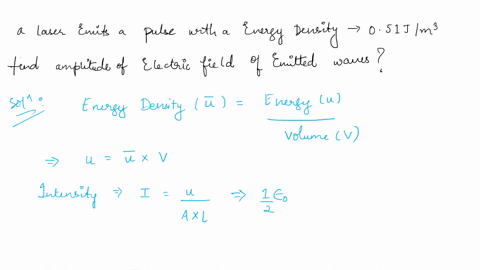 a laser Emits a pulse with a Energy Density → 0.51J/m³
find amplitude of Electric field of Emitted waves?
Solⁿ: Energy Density (ū) = Energy (u) / Volume (V)
⇒ u = ū × V
Intensity ⇒ I = u / A×L ⇒ 1/2 ε₀